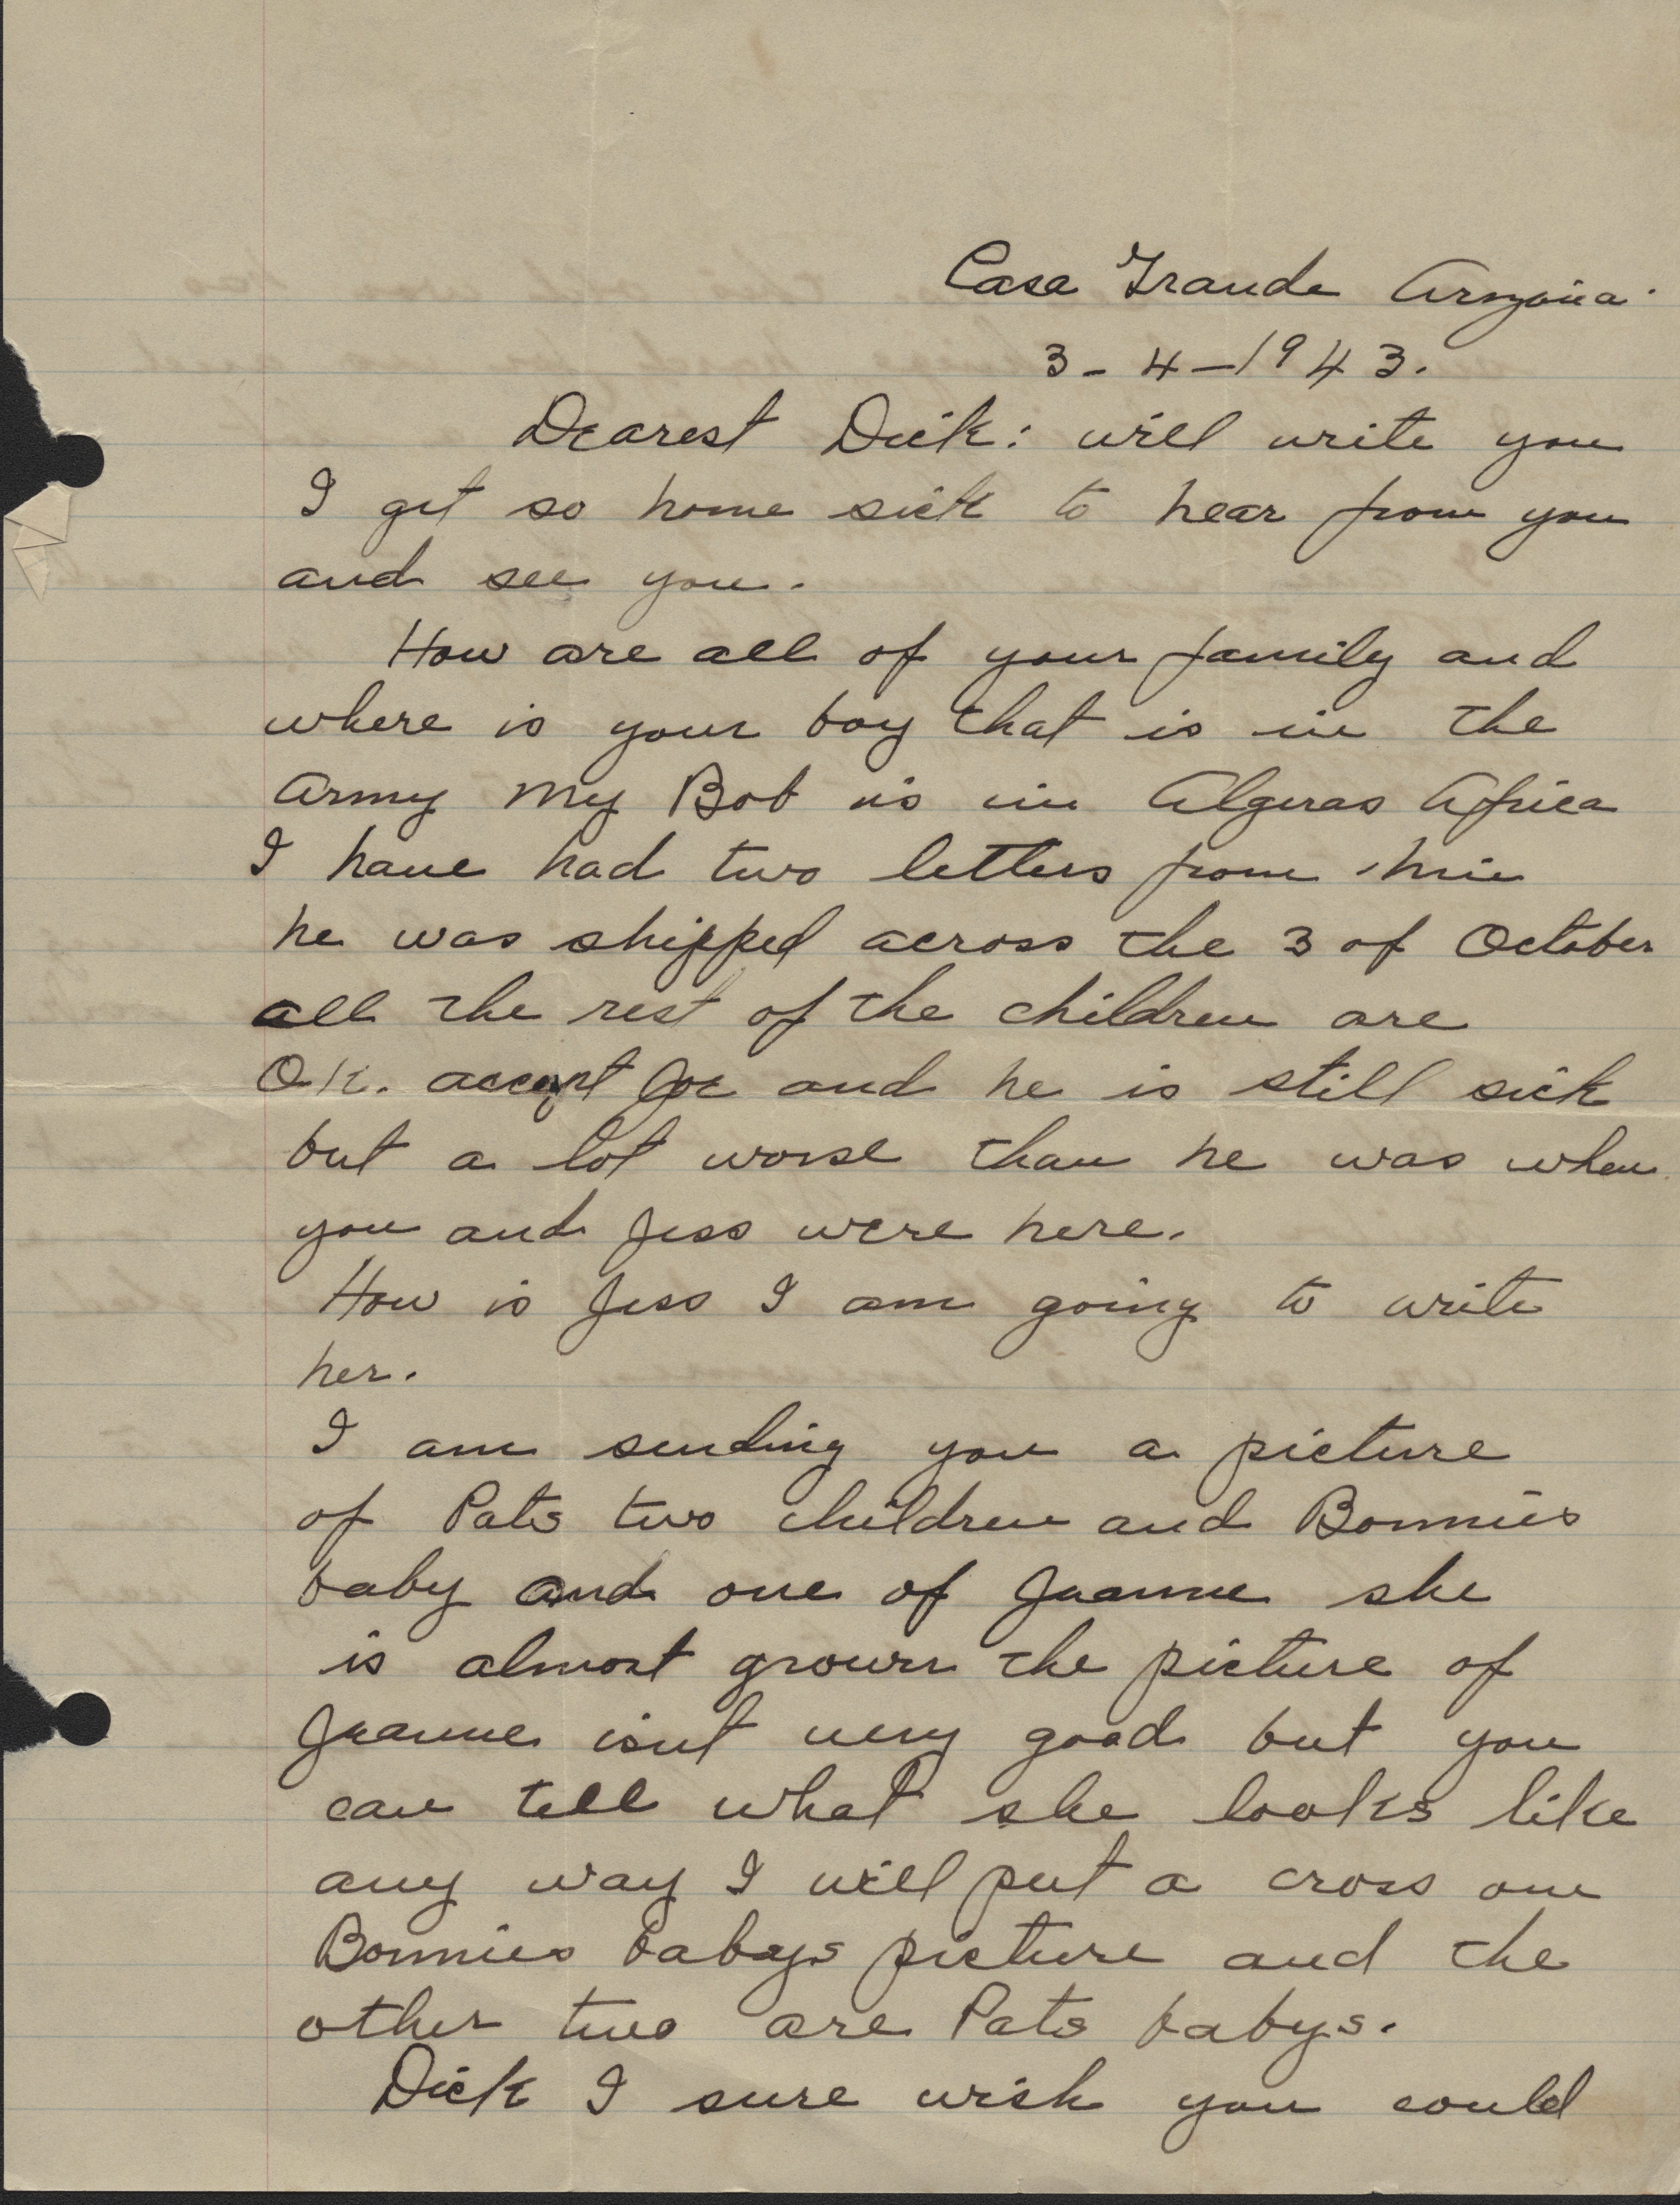 Casa Grande Arizona.
3 - 4 - 1943.
Dearest Dick: will write you
I get so home sick to hear from you
and see you.
How are all of your family and
where is your boy that is in the
army My Bob is in Algeras Africa
I have had two letters from him
he was shipped across the 3 of October
all the rest of the children are
O.K. accept Joe and he is still sick
but a lot worse than he was when
you and Jess were here.
How is Jess I am going to write
her.
I am sending you a picture
of Pats two children and Bonnies
baby and one of Jeanne she
is almost grown the picture of
Jeanne isnt very good but you
can tell what she looks like
any way I will put a cross on
Bonnies babys picture and the
other two are Pats babys.
Dick I sure wish you could